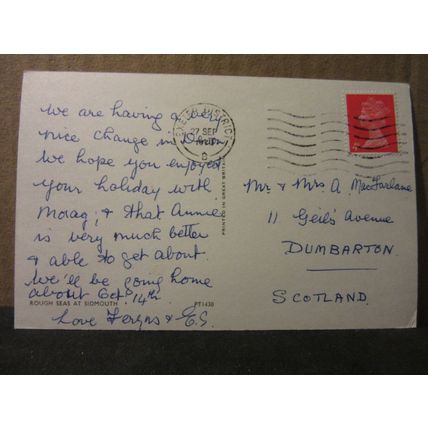 We are having a very
nice change in Devon
We hope you enjoyed
your holiday with
Morag, & that Annie
is very much better
& able to get about.
We'll be going home
about Oct 14th.
ROUGH SEAS AT SIDMOUTH
PT1430
Love Fergus & E.S.
EXETER DISTRICT
27 SEP
PRINTED IN GREAT BRITAIN
Mr. & Mrs A. MacFarlane
11 Geils Avenue
DUMBARTON
SCOTLAND.